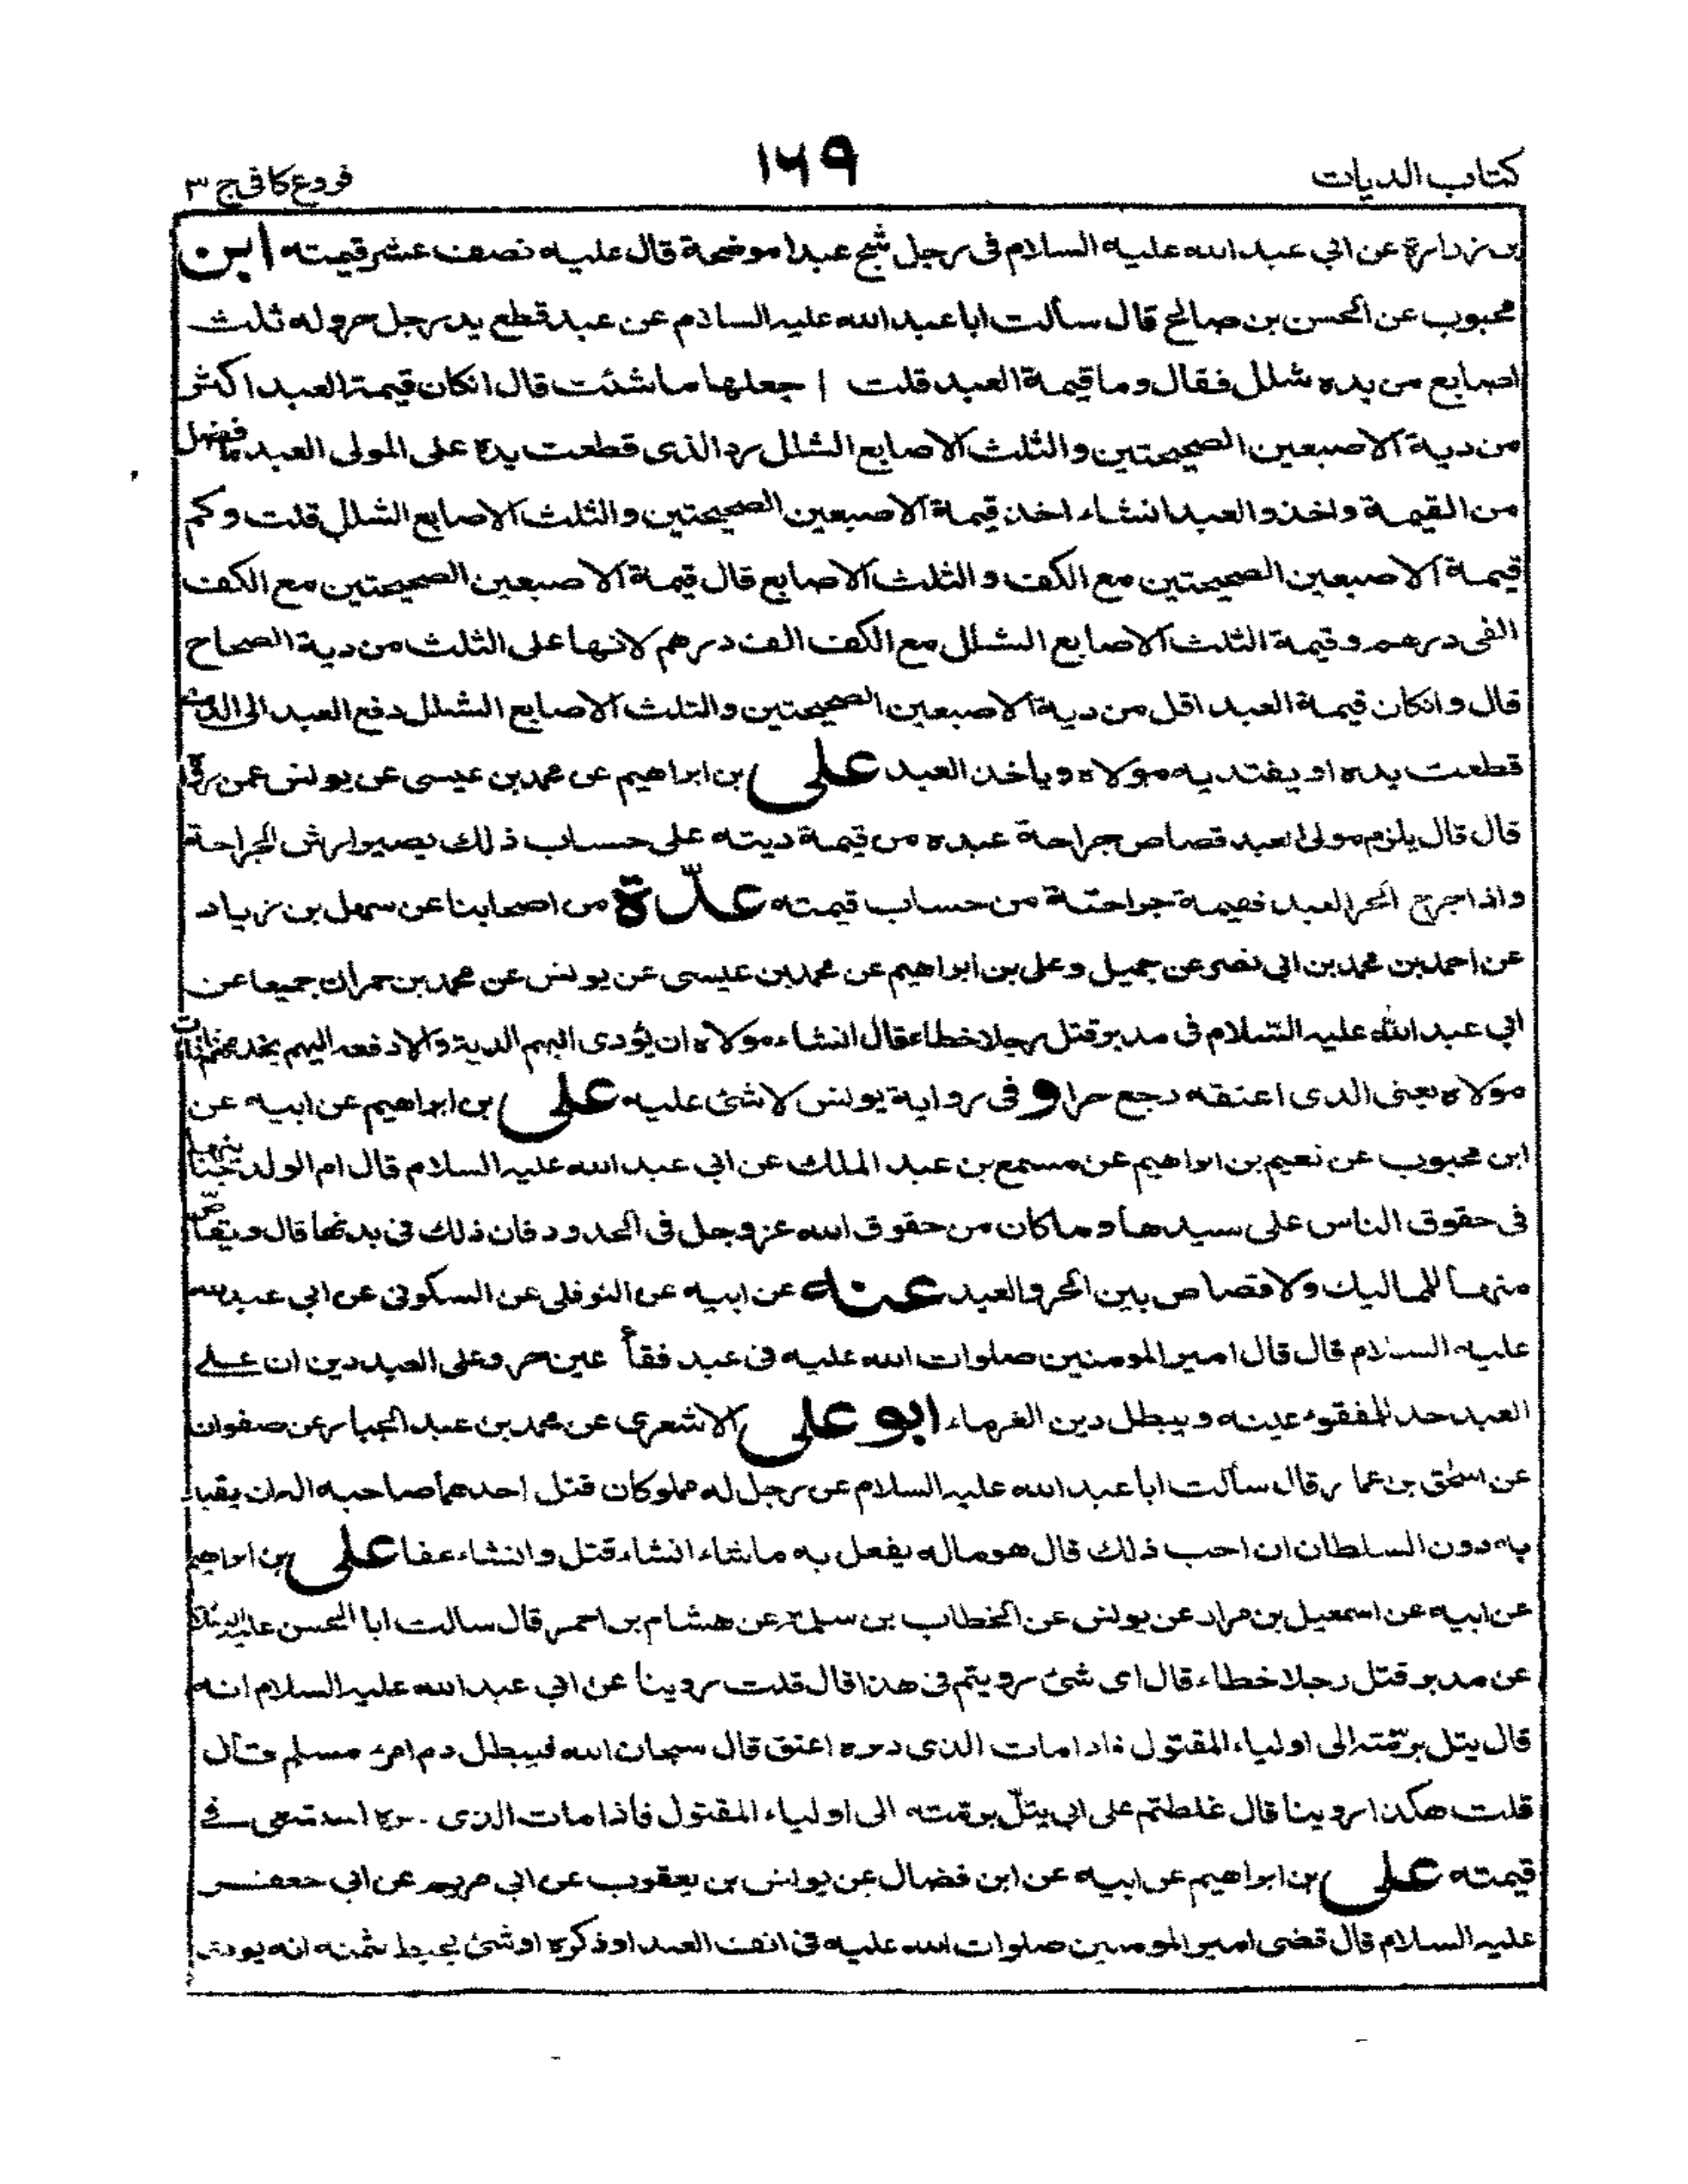 كتاب الديات
١٦٩
فروع كافى ج ٣
بن زرارة عن ابي عبد الله عليه السلام فى رجل شج عبدا موضحة قال عليه نصف عشر قيمته ابن
محبوب عن الحسن بن صالح قال سألت ابا عبد الله عليه السلام عن عبد قطع يد رجل حر وله ثلث
اصابع من يده شلل فقال وما قيمة العبد قلت اجعلها ما شئت قال انكان قيمة العبد اكثر
من دية الاصبعين الصحيحتين والثلث الاصابع الشلل رد الذى قطعت يده على المولى العبد ما فضل
من القيمة واخذ والعبد انشاء اخذ قيمة الاصبعين الصحيحتين والثلث الاصابع الشلل قلت وكم
قيمة الاصبعين الصحيحتين مع الكف والثلث الاصابع قال قيمة الاصبعين الصحيحتين مع الكف
الفى درهم وقيمة الثلث الاصابع الشلل مع الكف الف درهم لانها على الثلث من دية الصحاح
قال وانكان قيمة العبد اقل من دية الاصبعين الصحيحتين والثلث الاصابع الشلل دفع العبد الى الذى
قطعت يده او يفتديه مولاه وياخذ العبد على بن ابراهيم عن محمد بن عيسى عن يونس عمن رواه
قال قال يلزم مولى العبد قصاص جراحة عبده من قيمة ديته على حساب ذلك يصير ارش الجراحة
واذا جرح الحر العبد فقيمة جراحته من حساب قيمته عدّة من اصحابنا عن سهل بن زياد
عن احمد بن محمد بن ابي نصر عن جميل وعلى بن ابراهيم عن محمد بن عيسى عن يونس عن محمد بن حمران جميعا عن
ابي عبد الله عليه السلام فى مدبر قتل رجلا خطاء قال انشاء مولاه ان يؤدى اليهم الدية والا دفعه اليهم يخدمهم فاذا مات
مولاه يعنى الذى اعتقه رجع حرا وفى رواية يونس لا شئ عليه على بن ابراهيم عن ابيه عن
ابن محبوب عن نعيم بن ابراهيم عن مسمع بن عبد الملك عن ابي عبد الله عليه السلام قال ام الولد جنايتها
فى حقوق الناس على سيدها وما كان من حقوق الله عز وجل فى الحدود فان ذلك فى بدنها قال ويقاصّ
منها للمماليك ولا قصاص بين الحر والعبد عنه عن ابيه عن النوفلى عن السكونى عن ابي عبد الله
عليه السلام قال قال امير المومنين صلوات الله عليه فى عبد فقأ عين حر وعلى العبد دين ان على
العبد حد للمفقوء عينه ويبطل دين الغرماء ابو على الاشعرى عن محمد بن عبد الجبار عن صفوان
عن اسحق بن عمار قال سألت ابا عبد الله عليه السلام عن رجل له مملوكان قتل احدهما صاحبه اله ان يقيد
به دون السلطان ان احب ذلك قال هو ماله يفعل به ما شاء انشاء قتل وانشاء عفا على بن ابراهيم
عن ابيه عن اسمعيل بن مرار عن يونس عن الخطاب بن سلمة عن هشام بن احمر قال سالت ابا الحسن عليه السلام
عن مدبر قتل رجلا خطاء قال اى شئ رويتم فى هذا قال قلت روينا عن ابي عبد الله عليه السلام انه
قال يتل برمته الى اولياء المقتول فاذا مات الذى دبره اعتق قال سبحان الله فيبطل دم امرء مسلم قال
قلت هكذا روينا قال غلطتم على ابي يتلّ برمته الى اولياء المقتول فاذا مات الذى دبره استسعى فى
قيمته على بن ابراهيم عن ابيه عن ابن فضال عن يونس بن يعقوب عن ابي مريم عن ابي جعفر
عليه السلام قال قضى امير المومنين صلوات الله عليه فى انف العبد او ذكره او شئ يحيط بثمنه انه يودى